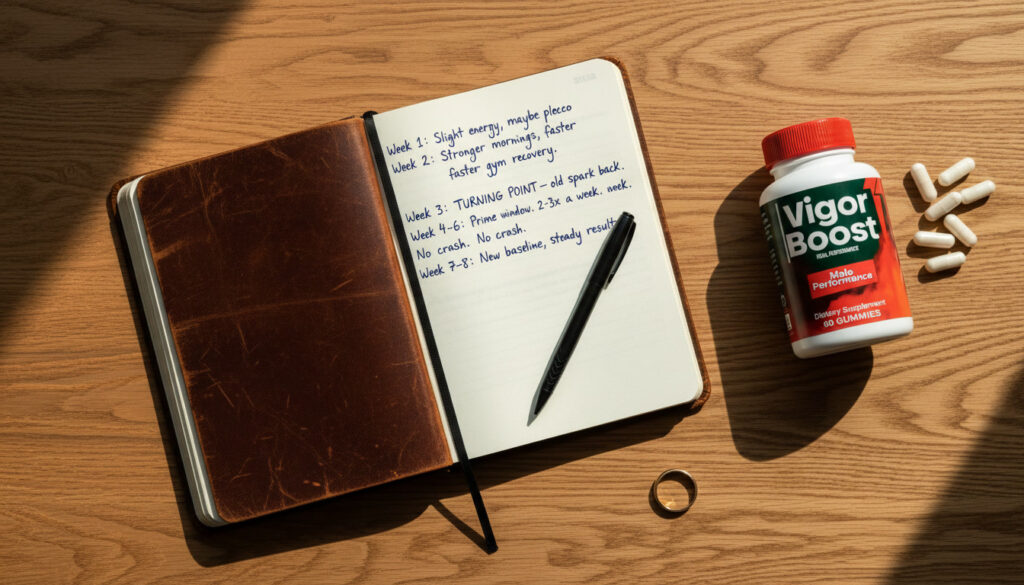 Week 1: Slight energy, maybe plecco
Week 2: Stronger mornings, faster
faster gym recovery.
Week 3: TURNING POINT – old spark back.
Week 4–6: Prime window. 2-3x a week. neek.
No crash. No crash.
Week 7–8: New baseline, steady result
Vigor
Boost
Male
Performance
Dietary Supplement
60 GUMMIES